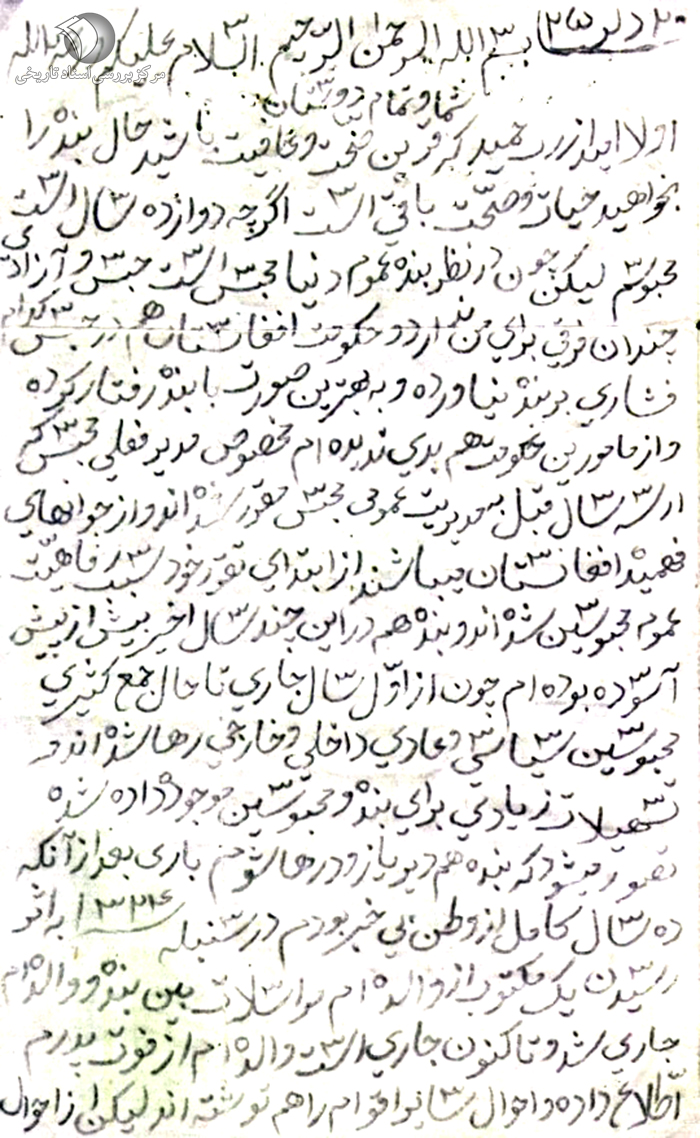 ۲۰ دلو ۲۵ بسم الله الرحمن الرحیم السلام علیکم
مرکز بررسی اسناد تاریخی
شما و تمام دوستان
اولا امید از رب حمید که قرین صحت و عافیت باشید حال بنده را
بخواهید حیات و صحّت باقی است اگرچه دوازده سال است
محبوسم لیکن چون در نظر بنده عموم دنیا محبس است حبس و آزادی
چندان فرقی برای من ندارد و حکومت افغانستان هم در حبس کدام
فشاری بر بنده نیاورده و به بهترین صورت با بنده رفتار کرده
و از مامورین حکومت هم بدی ندیده ام مخصوص مدیر فعلی محبس که
از سه سال قبل به مدیریت عمومی محبس مقرر شده اند و از جوانهای
فهمیده افغانستان میباشند از ابتدای تقرر خود سبب رفاهیّت
عموم محبوسین شده اند و بنده هم در این چند سال اخیر بیش از پیش
آسوده بوده ام چون از اوّل سال جاری تا حال جمع کثیری
محبوسین سیاسی و عادی داخلی و خارجی رها شده اند و
تسهیلات زیادی برای بنده و محبوسین موجوده داده شده
تصور میشود که بنده هم دیر یا زود رها شوم باری بعد از آنکه
ده سال کامل از وطن بی خبر بودم در سنبله ۱۳۲۴ به اثر
رسیدن یک مکتوب از والده ام مراسلات بین بنده و والده ام
جاری شد و تاکنون جاری است والده ام از فوت پدرم
اطّلاع داده و احوال سایر اقوام را هم نوشته اند لیکن از احوال